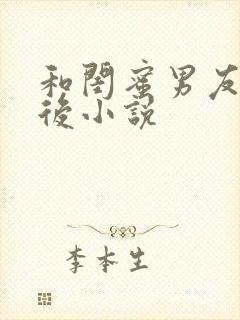 和閏蜜男友
後小説
李本生